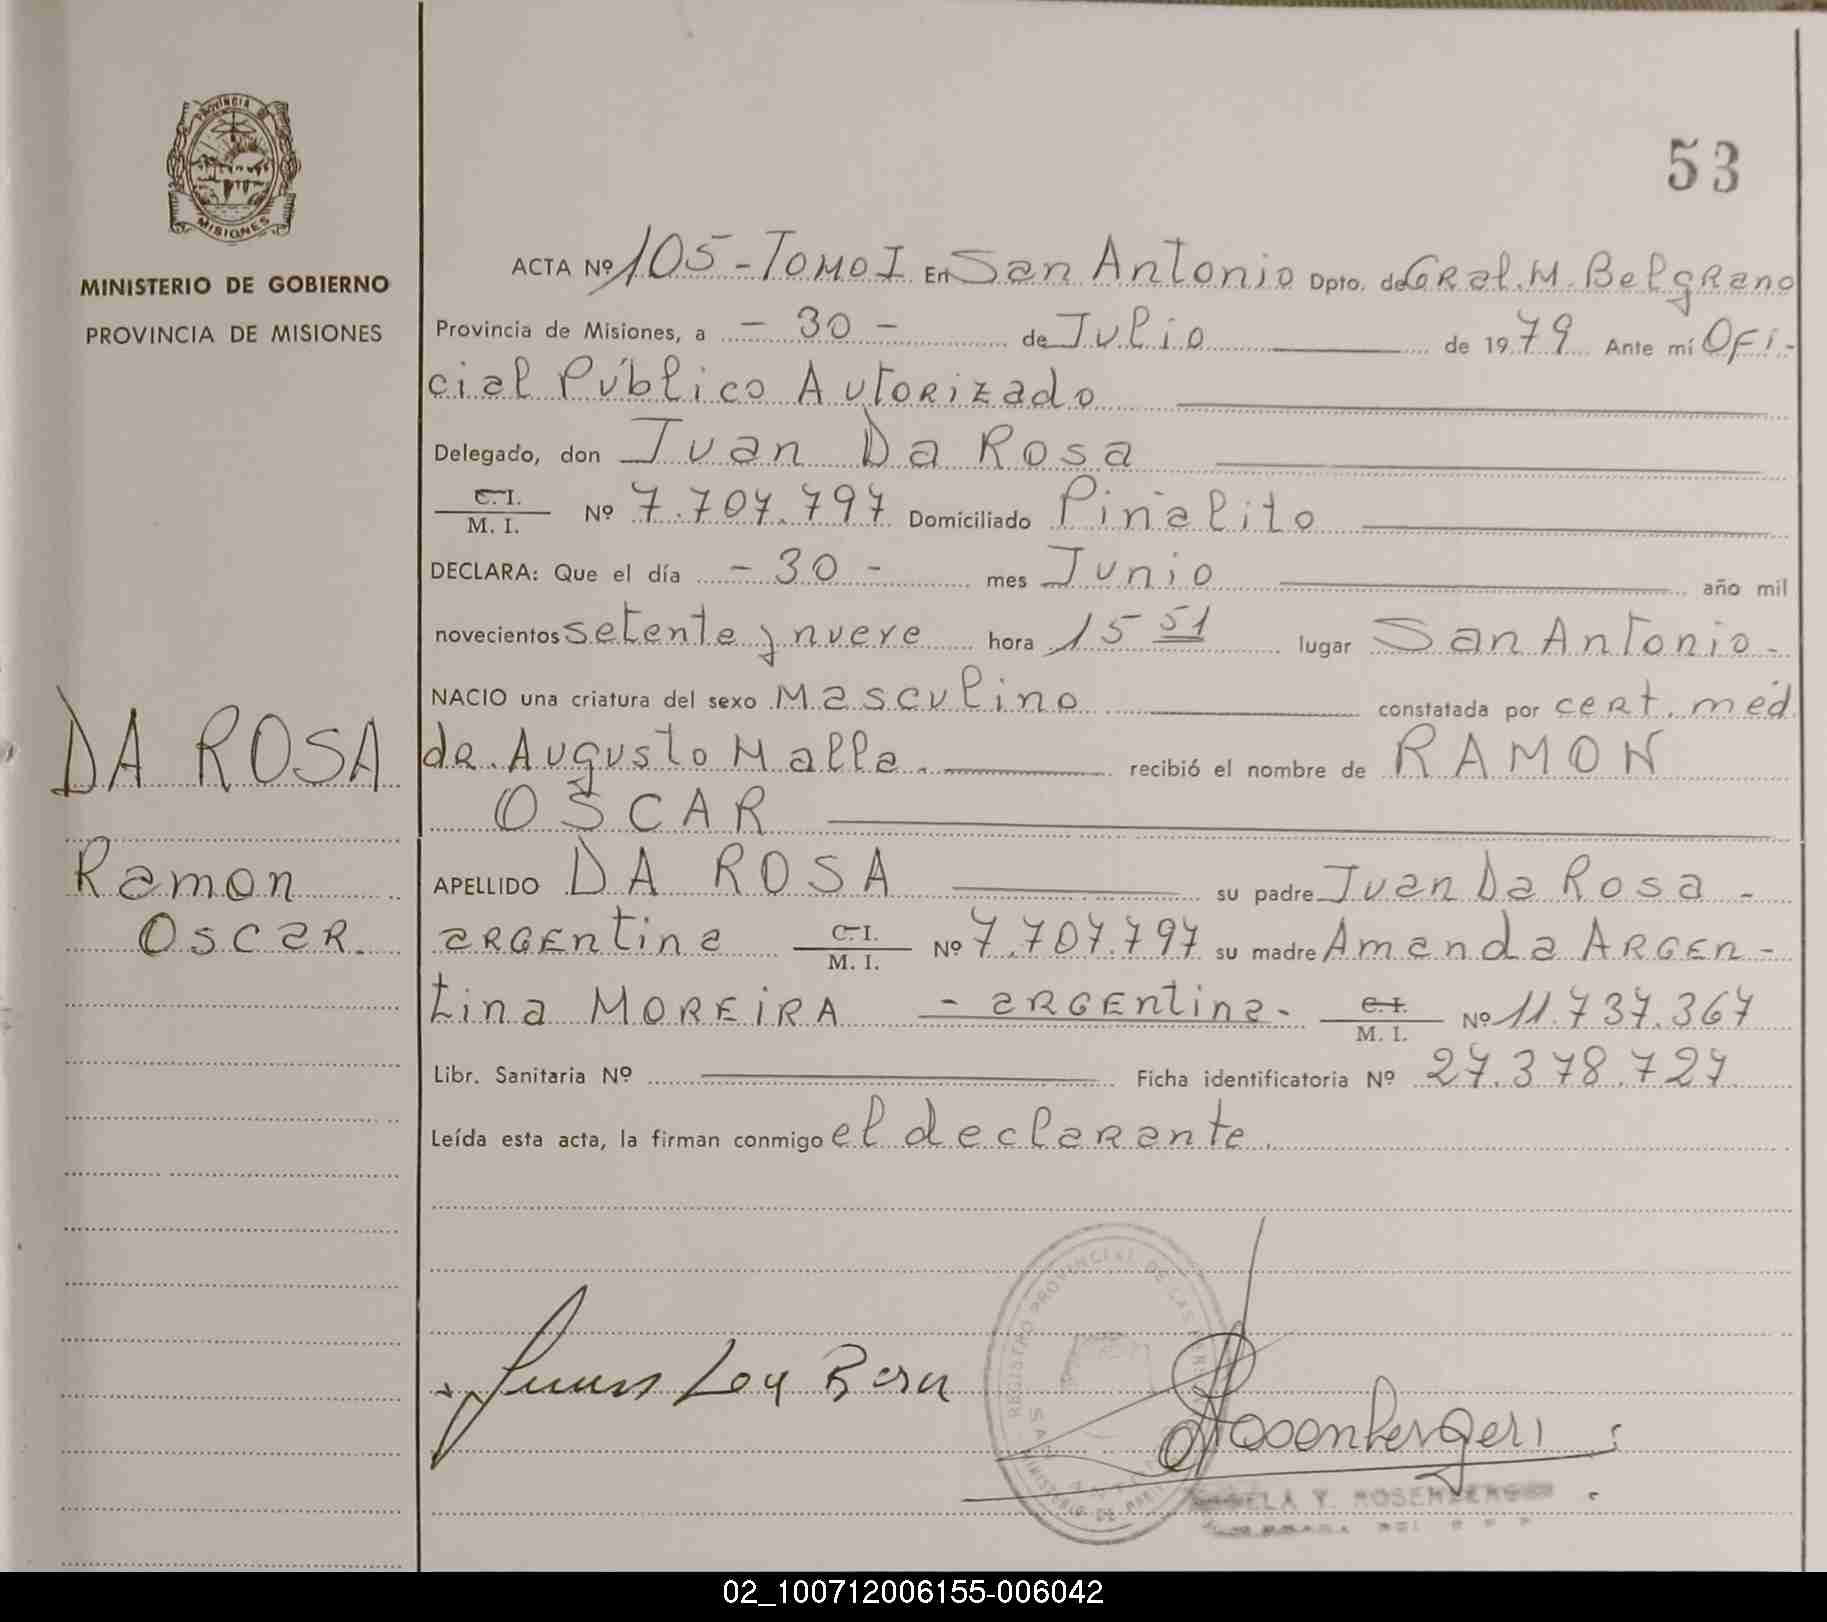 PROVINCIA DE
MISIONES
MINISTERIO DE GOBIERNO
PROVINCIA DE MISIONES
DA ROSA
Ramon
Oscar.
53
ACTA Nº 105 - Tomo I En San Antonio Dpto. de Gral. M. Belgrano
Provincia de Misiones, a - 30 - de Julio de 1979 Ante mí Ofi-
cial Público Autorizado
Delegado, don Juan Da Rosa
C. I.
M. I. Nº 7.707.797 Domiciliado Piñalito
DECLARA: Que el día - 30 - mes Junio año mil
novecientos setenta y nueve hora 15 51 lugar San Antonio -
NACIO una criatura del sexo Masculino constatada por cert. med.
dr. Augusto Malla. recibió el nombre de RAMON
OSCAR
APELLIDO DA ROSA su padre Juan Da Rosa -
argentina C. I.
M. I. Nº 7.707.797 su madre Amanda Argen-
tina MOREIRA - argentina - C. I.
M. I. Nº 11.737.367
Libr. Sanitaria Nº Ficha identificatoria Nº 27.378.727
Leída esta acta, la firman conmigo el declarante.
REGISTRO PROVINCIAL DE LAS
Rosenberger
Y. ROSENBERGER
02_100712006155-006042